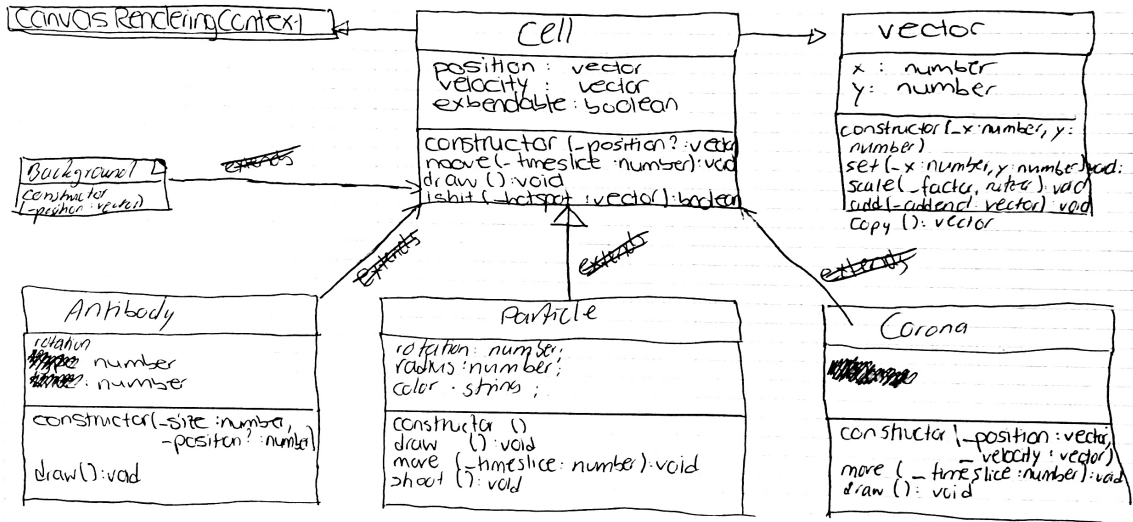 CanvasRenderingContext
Cell
position : vector
velocity : vector
exbendable : boolean
constructor (_position? : vector
moove (_timeslice : number) : void
draw () : void
ishit (_hotspot : vector) : boolean
vector
x : number
y : number
constructor (_x : number, y :
number)
set (_x : number, y : number) void :
scale (_factor, ) : void
add (_addend : vector) : void
copy () : vector
Background
constructor
(_position : vector)
extends
extends
extends
extends
Antibody
rotation
number
: number
constructor (_size : number,
_position? : number)
draw () : void
Particle
rotation : number ;
radius : number ;
color : string ;
constructor ()
draw () : void
move (_timeslice : number) : void
shoot () : void
Corona
constructor (_position : vector,
_velocity : vector)
move (_timeslice : number) : void
draw () : void